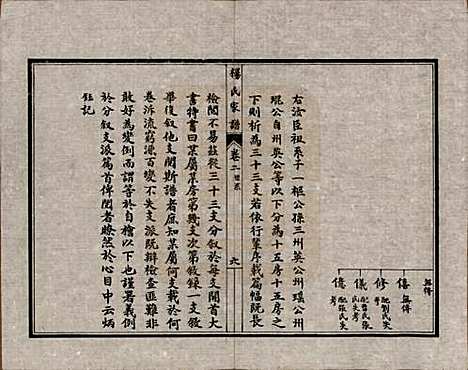 無傳
傳 無傳
修 配劉氏失考
儀 配曹氏張氏失考
億 配張氏失考
右汝臣祖系子一柜公孫三州英公州璞公州
琨公自州英公等以下分為十五房十五房之
下則析為三十三支若依行輩序載篇幅既長
檢閱不易茲從三十三支分敘於每支開首大
書特書曰某屬某房第幾支次第敘錄一支敘
畢復敘他支閱斯譜者庶知某屬何支載於何
卷泝流窮源百變不失支派既辯檢查匪難非
敢好為變例而謂等於自檜以下也謹署義例
於分敘支派篇首俾閱者瞭然於心目中云炳
鈺記
楊氏家譜
卷二
九